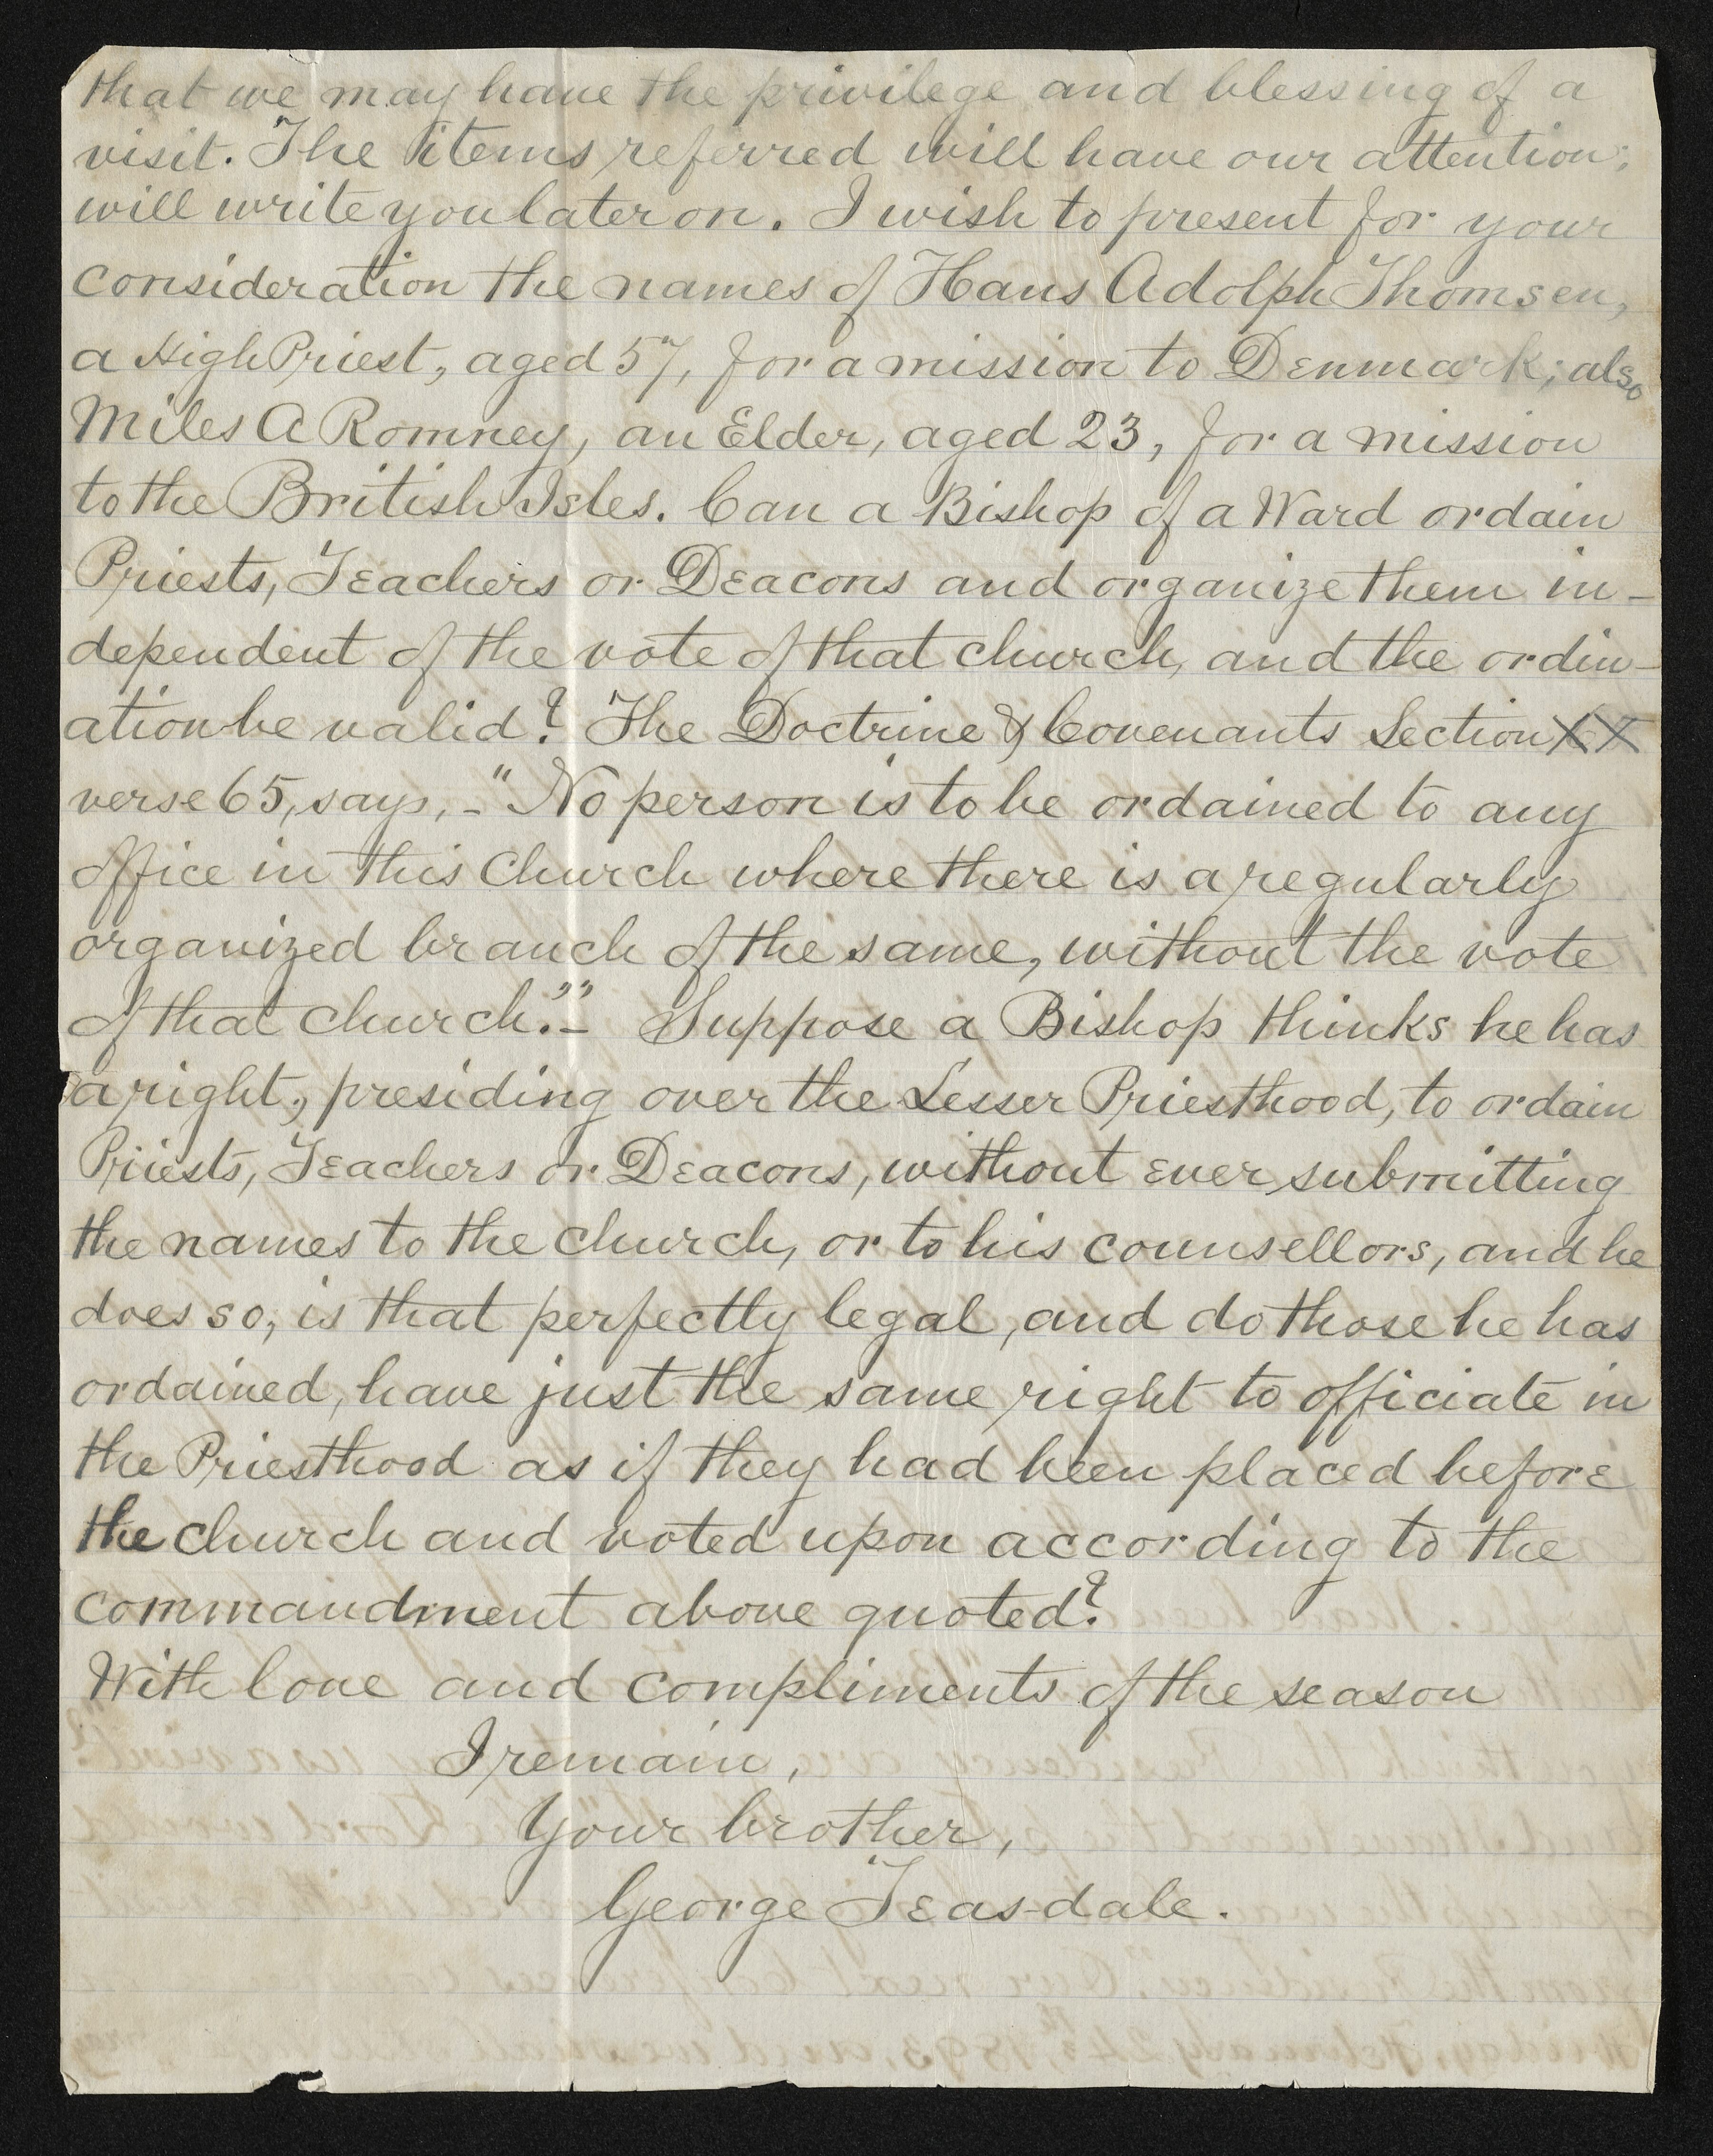 that we may have the privilege and blessing of a
visit. The items referred will have our attention;
will write you later on. I wish to present for your
consideration the names of Hans Adolph Thomsen,
a High Priest, aged 57, for a mission to Denmark; also
Miles A Romney, an Elder, aged 23, for a mission
to the British Isles. Can a Bishop of a Ward ordain
Priests, Teachers or Deacons and organize them in-
dependent of the vote of that church, and the ordin-
ation be valid? The Doctrine & Covenants Section XX
verse 65, says, - "No person is to be ordained to any
office in this Church where there is a regularly
organized branch of the same, without the vote
of that church."- Suppose a Bishop thinks he has
a right, presiding over the Lesser Priesthood, to ordain
Priests, Teachers or Deacons, without ever submitting
the names to the church, or to his counsellors, and he
does so, is that perfectly legal, and do those he has
ordained, have just the same right to officiate in
the Priesthood as if they had been placed before
the church and voted upon according to the
commandment above quoted?
With love and compliments of the season
I remain,
Your brother,
George Teasdale.